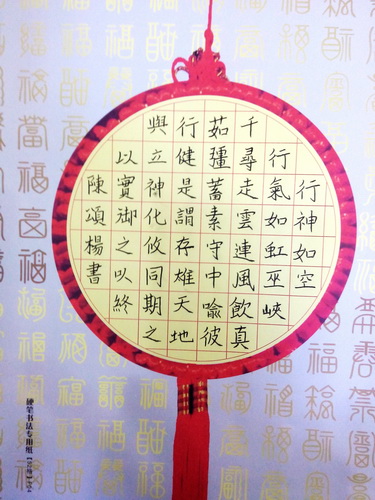 行神如空
行氣如虹巫峽
千尋走雲連風飲真
茹彊蓄素守中喻彼
行健是謂存雄天地
與立神化攸同期之
以實御之以終
陳頌楊書
硬笔书法专用纸